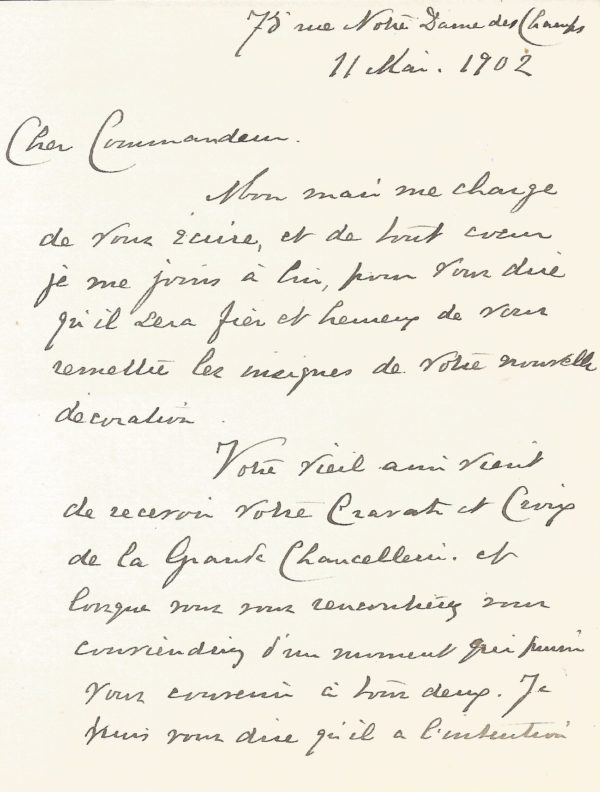 75 rue Notre Dame des Champs
11 Mai. 1902
Cher Commandeur.
Mon mari me charge
de vous écrire, et de tout coeur
je me joins à lui, pour vous dire
qu'il sera fier et heureux de vous
remettre les insignes de votre nouvelle
décoration.
Votre vieil ami vient
de recevoir votre Cravate et Croix
de la Grande Chancellerie. et
lorsque vous vous rencontrerez vous
conviendrez d'un moment qui puisse
vous convenir à tous deux. Je
puis vous dire qu'il a l'intention